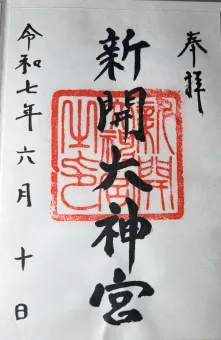 奉拝
新開大神宮
令和七年六月十日